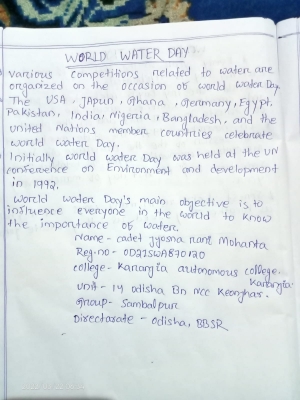 WORLD WATER DAY
various competitions related to water are
organized on the occasion of world water Day.
The USA, Japun, Ghana, Germany, Egypt,
Pakistan, India, Nigeria, Bangladesh, and the
united Nations member countries celebrate
world water Day.
Initially world water Day was held at the UN
conference on Environment and development
in 1992.
World water Day's main objective is to
influence everyone in the world to know
the importance of water.
Name - cadet Jyosna rani Mohanta
Reg.no - OD21SWA870120
college - Karangia autonomous college.
Karangia
Unit - 14 odisha Bn ncc Keonjhar.
Group - Sambalpur
Directarate - odisha, BBSR